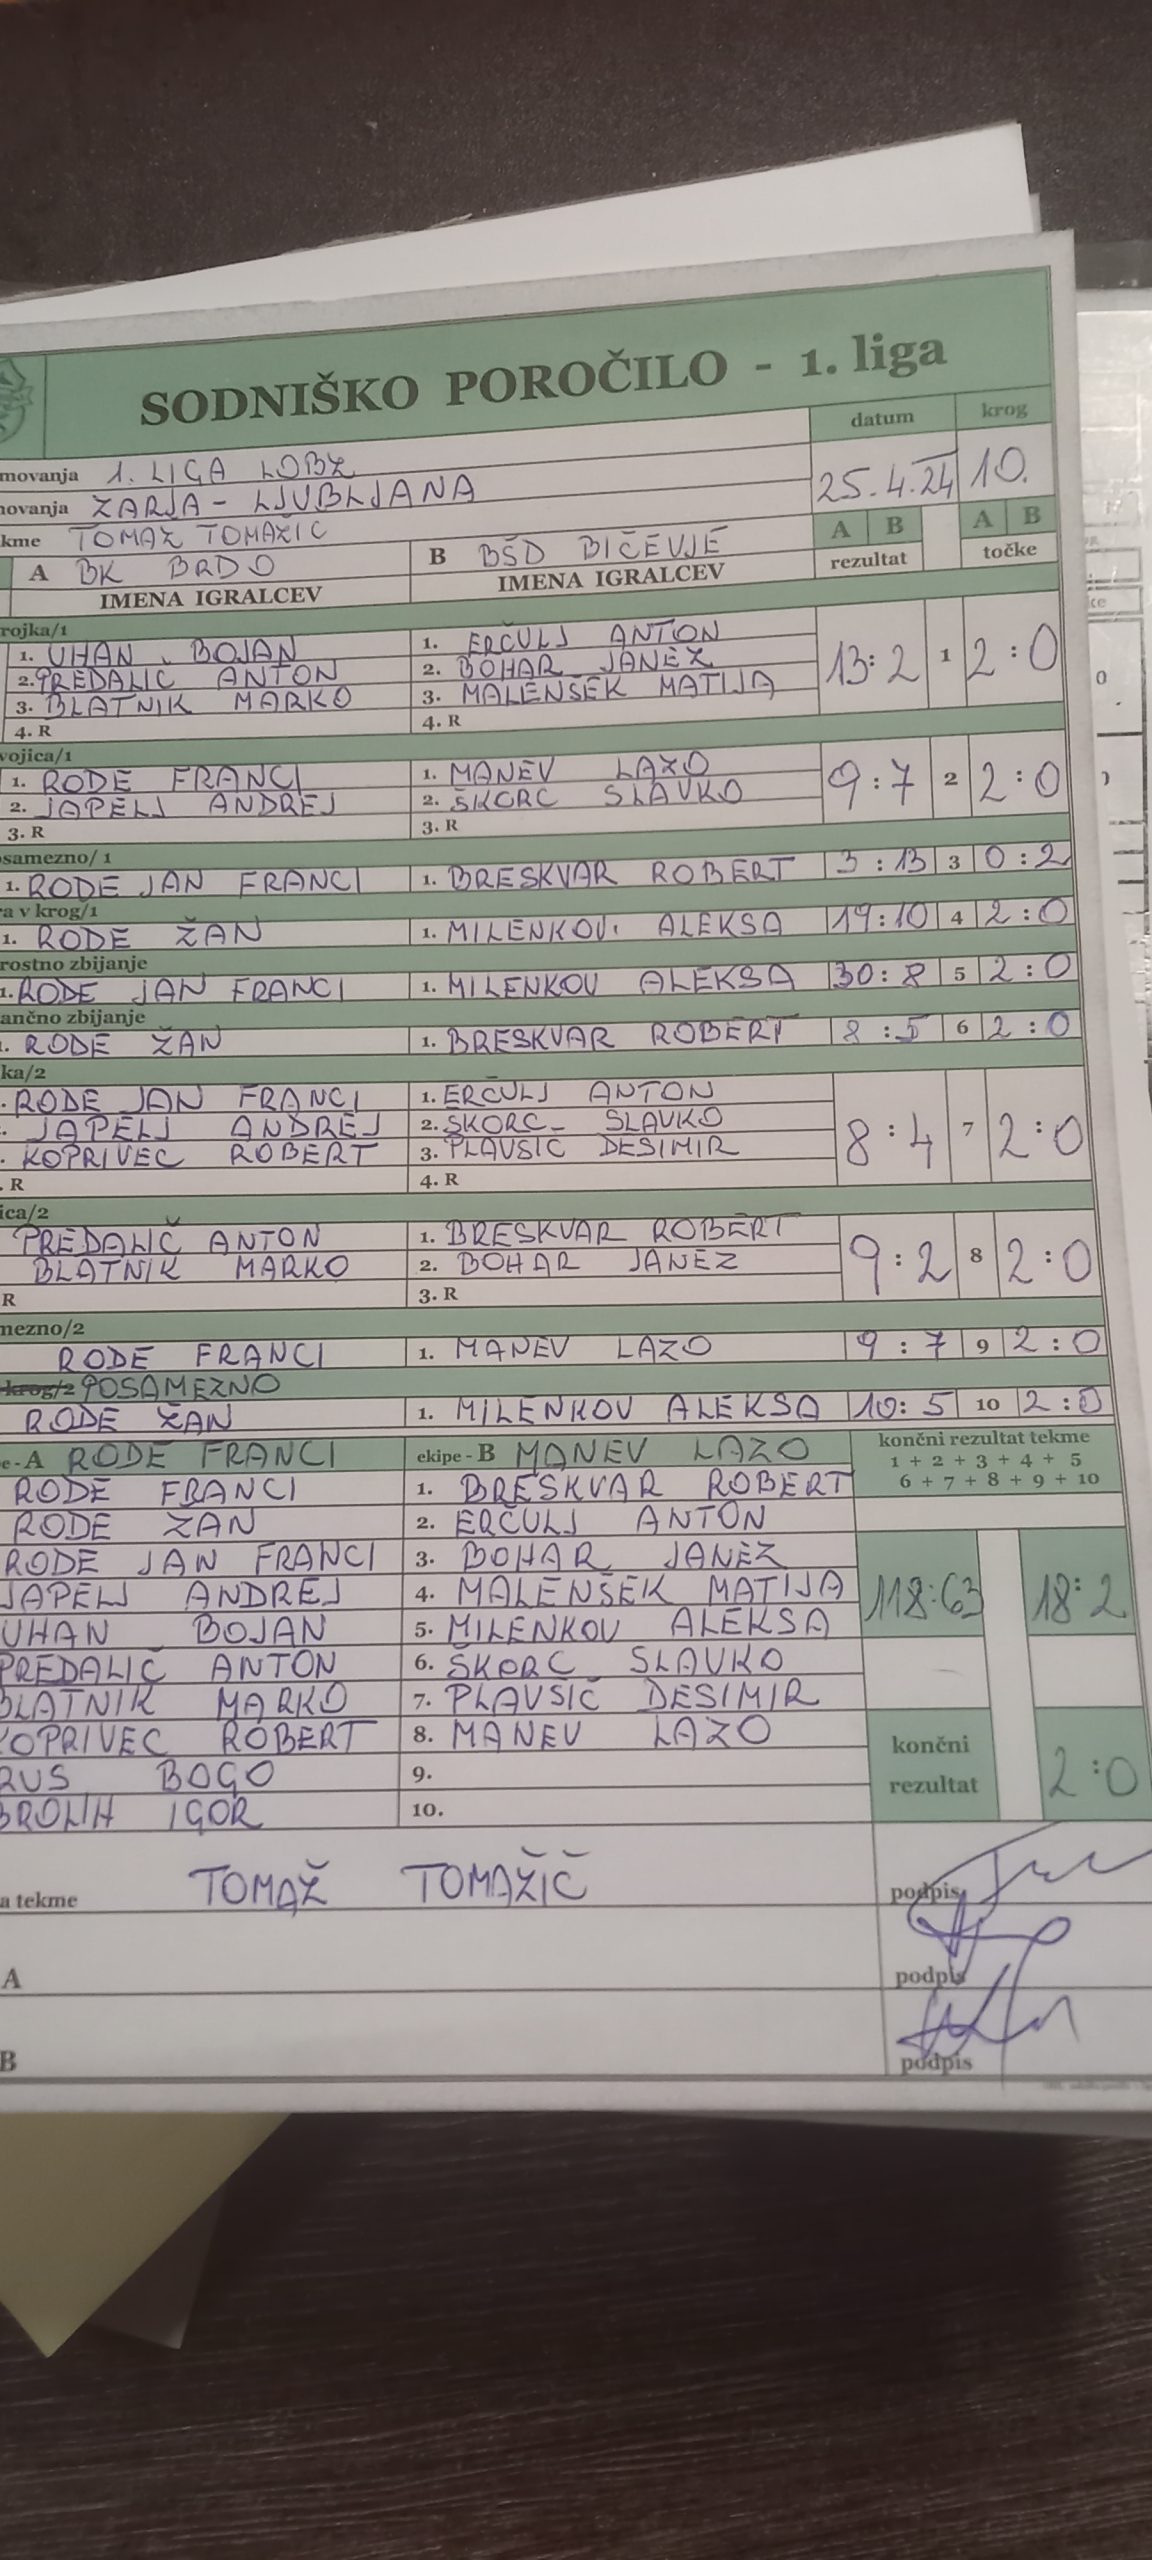 SODNIŠKO POROČILO - 1. liga
datum krog
movanja 1. LIGA LOBZ
25.4.24 10.
novanja ZARJA - LJUBLJANA
kme TOMAŽ TOMAŽIC
A B A B
A BK BRDO B BŠD BIČEVJE
rezultat točke
IMENA IGRALCEV IMENA IGRALCEV
rojka/1
1. UHAN BOJAN 1. ERČULJ ANTON
2. PREDALIČ ANTON 2. BOHAR JANEZ 13:2 1 2:0
3. BLATNIK MARKO 3. MALENŠEK MATIJA
4. R 4. R
vojica/1
1. RODE FRANCI 1. MANEV LAZO
2. JAPELJ ANDREJ 2. ŠKORC SLAVKO 9:7 2 2:0
3. R 3. R
samezno/ 1
1. RODE JAN FRANCI 1. BRESKVAR ROBERT 3:13 3 0:2
a v krog/1
1. RODE ŽAN 1. MILENKOV. ALEKSA 19:10 4 2:0
rostno zbijanje
1. RODE JAN FRANCI 1. MILENKOV ALEKSA 30:8 5 2:0
ančno zbijanje
. RODE ŽAN 1. BRESKVAR ROBERT 8:5 6 2:0
ka/2
. RODE JAN FRANCI 1. ERČULJ ANTON
. JAPELJ ANDREJ 2. ŠKORC SLAVKO 8:4 7 2:0
. KOPRIVEC ROBERT 3. PLAVSIC DESIMIR
. R 4. R
ica/2
PREDALIČ ANTON 1. BRESKVAR ROBERT
BLATNIK MARKO 2. BOHAR JANEZ 9:2 8 2:0
R 3. R
mezno/2
RODE FRANCI 1. MANEV LAZO 9:7 9 2:0
krog/2 POSAMEZNO
RODE ŽAN 1. MILENKOV ALEKSA 10:5 10 2:0
e - A RODE FRANCI ekipe - B MANEV LAZO končni rezultat tekme
1 + 2 + 3 + 4 + 5
6 + 7 + 8 + 9 + 10
RODE FRANCI 1. BRESKVAR ROBERT
RODE ŽAN 2. ERČULJ ANTON
RODE JAN FRANCI 3. BOHAR JANEZ
JAPELJ ANDREJ 4. MALENŠEK MATIJA 118:63 18:2
UHAN BOJAN 5. MILENKOV ALEKSA
PREDALIČ ANTON 6. ŠKORC SLAVKO
BLATNIK MARKO 7. PLAVŠIČ DESIMIR
KOPRIVEC ROBERT 8. MANEV LAZO končni
RUS BOGO 9. rezultat 2:0
BROLIH IGOR 10.
a tekme TOMAŽ TOMAŽIČ podpis
A podpis
B podpis